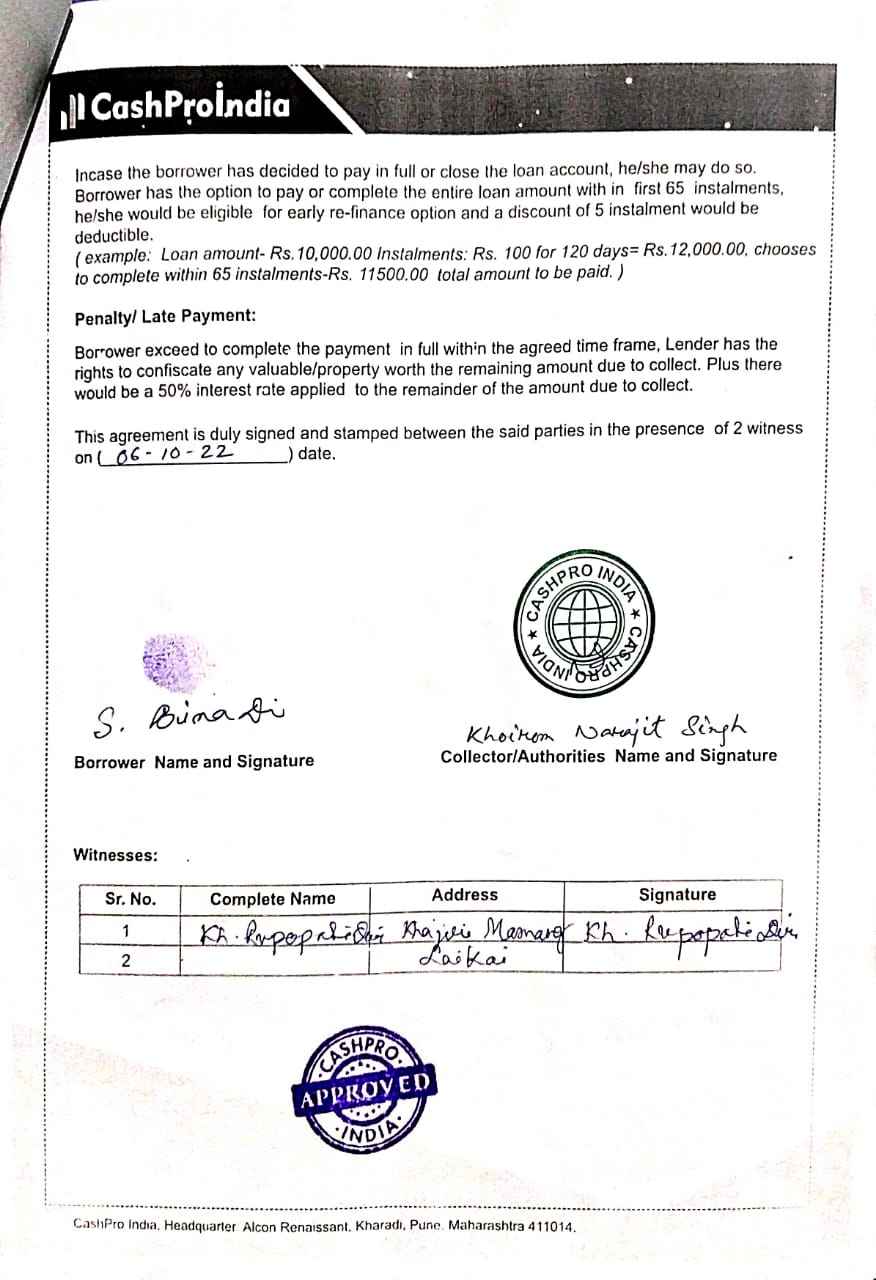 CashProindia
Incase the borrower has decided to pay in full or close the loan account, he/she may do so.
Borrower has the option to pay or complete the entire loan amount with in first 65 instalments,
he/she would be eligible for early re-finance option and a discount of 5 instalment would be
deductible.
( example: Loan amount- Rs.10,000.00 Instalments: Rs. 100 for 120 days= Rs.12,000.00, chooses
to complete within 65 instalments-Rs. 11500.00 total amount to be paid. )
Penalty/ Late Payment:
Borrower exceed to complete the payment in full within the agreed time frame, Lender has the
rights to confiscate any valuable/property worth the remaining amount due to collect. Plus there
would be a 50% interest rate applied to the remainder of the amount due to collect.
This agreement is duly signed and stamped between the said parties in the presence of 2 witness
on ( 06-10-22 ) date.
CASHPRO INDIA ★ CASHPRO INDIA ★
S. Bima Di
Khoirom Narajit Singh
Borrower Name and Signature
Collector/Authorities Name and Signature
Witnesses:
Sr. No. Complete Name Address Signature
1 Kh. Mamang Kh.
2 Laikai
CASHPRO
APPROVED
INDIA
CashPro India, Headquarter Alcon Renaissant, Kharadi, Pune. Maharashtra 411014.